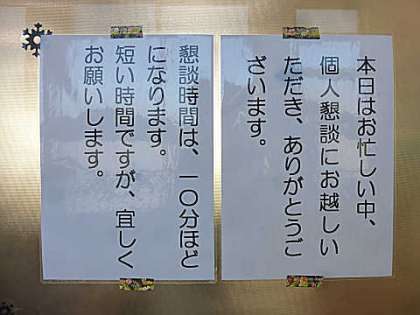 本日はお忙しい中、
個人懇談にお越しい
ただき、ありがとうご
ざいます。
懇談時間は、一〇分ほど
になります。
短い時間ですが、宜しく
お願いします。